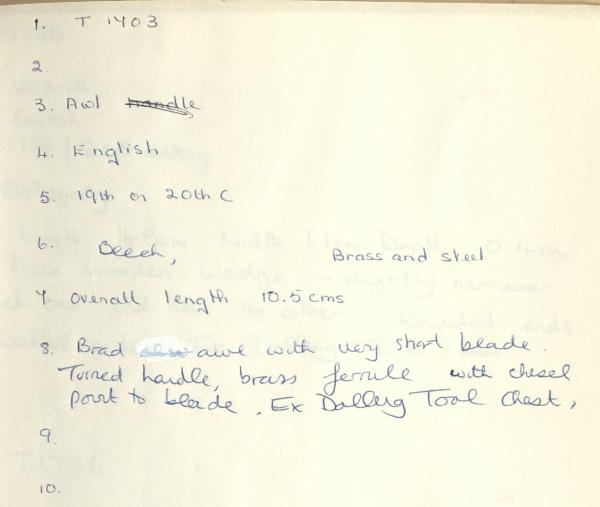 1. T 1403
2.
3. Awl handle
4. English
5. 19th or 20th C
6. Beech, Brass and steel
7. overall length 10.5 cms
8. Brad awl with very short blade.
Turned handle, brass ferrule with chisel
point to blade. Ex Dalling Tool Chest,
9.
10.